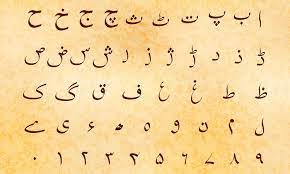 ا ب پ ت ٹ ث چ ج خ ح
ڈ ذ د ڑ ژ ز ر ش س ض ص
ظ ط ع غ ف ق گ ک
ل م ن و ہ ھ ء ی ے
۰ ۱ ۲ ۳ ۴ ۵ ۶ ۷ ۸ ۹